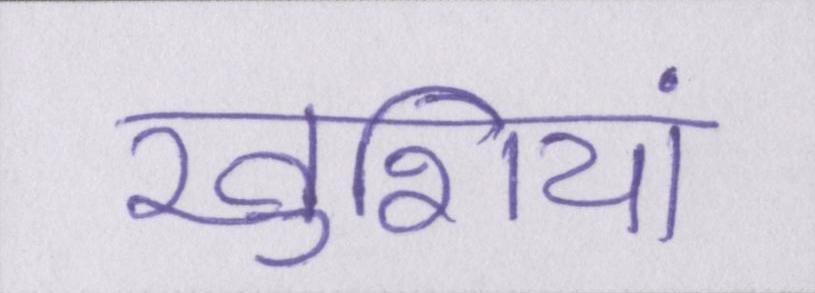 खुशियां